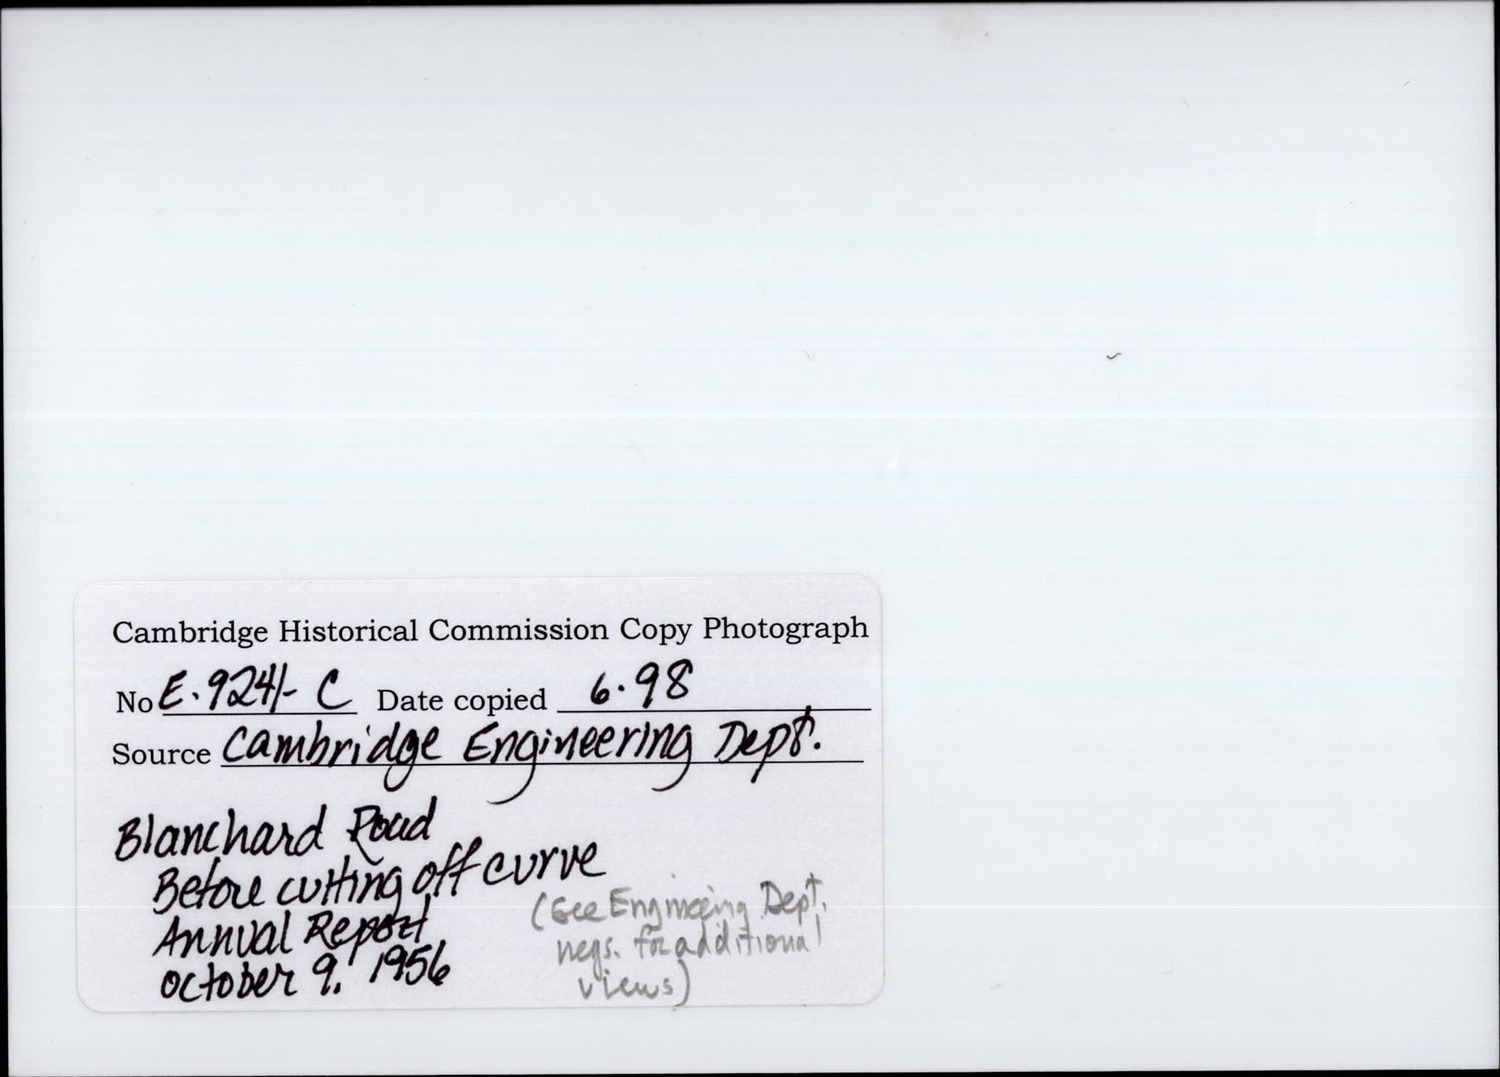 Cambridge Historical Commission Copy Photograph
No E.9241- C Date copied 6.98
Source Cambridge Engineering Dept.
Blanchard Road
Before cutting off curve
Annual Report
October 9, 1956
(See Engineering Dept.
negs. for additional
views)